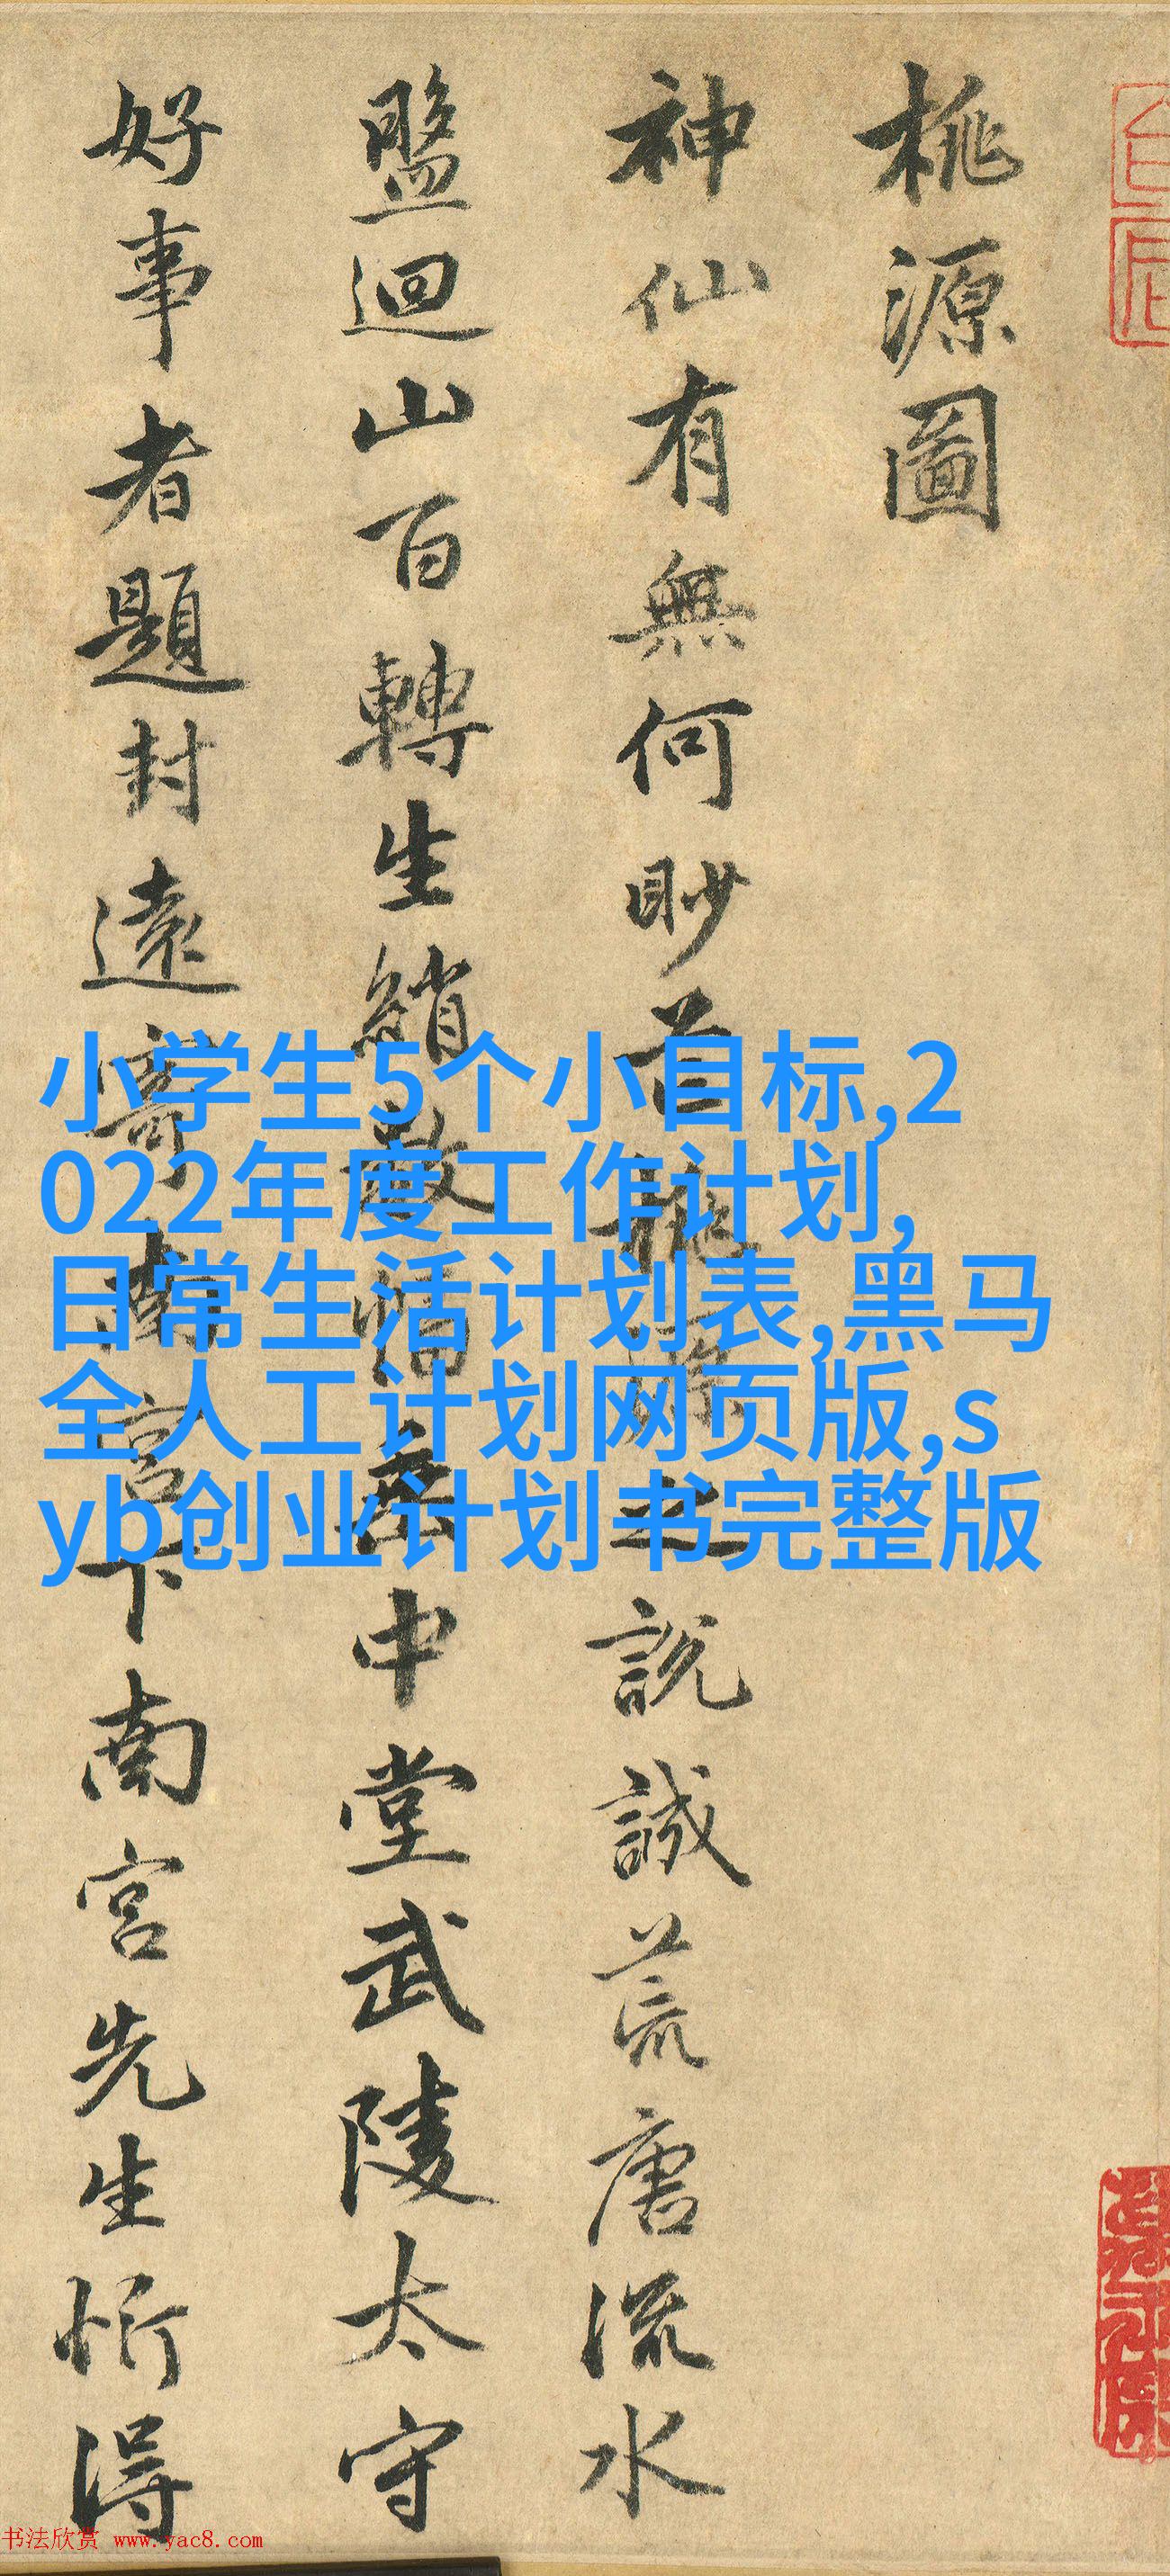 桃源圖
神仙有無何眇芒桃源之說誠荒唐流水
盤迴山百轉生綃數幅垂中堂武陵太守
好事者題封遠寄南宮下南宮先生忻得
小学生5个小目标,2
022年度工作计划,
日常生活计划表,黑马
全人工计划网页版,s
yb创业计划书完整版
书法欣赏 www.yac8.com